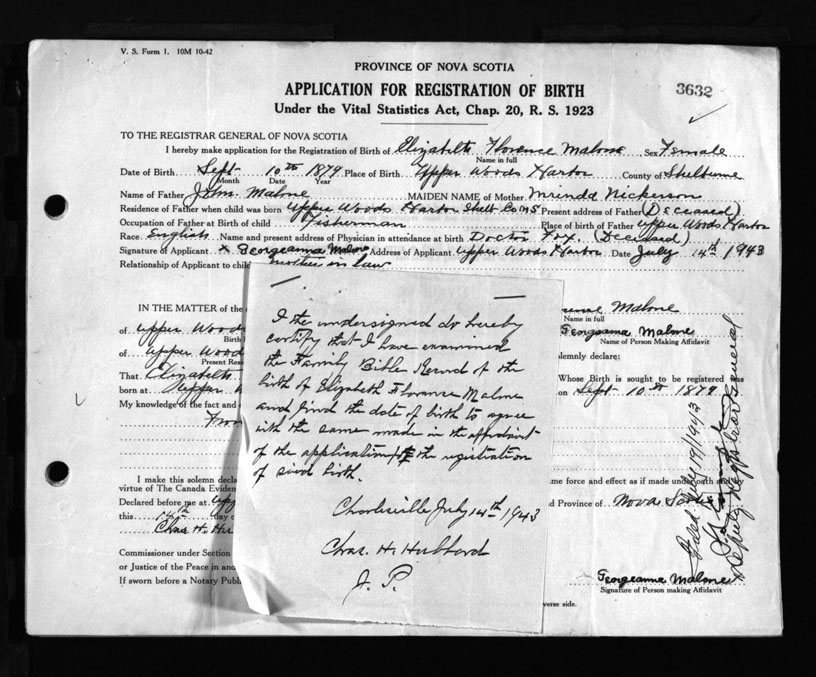 V. S. Form 1. 10M 10-42
PROVINCE OF NOVA SCOTIA
APPLICATION FOR REGISTRATION OF BIRTH
3632
Under the Vital Statistics Act, Chap. 20, R. S. 1923
TO THE REGISTRAR GENERAL OF NOVA SCOTIA
I hereby make application for the Registration of Birth of Elizabeth Florence Malone Sex Female
Name in full
Date of Birth Sept 10th 1879 Place of Birth Upper Woods Harbor County of Shelburne
Month Date Year
Name of Father John Malone MAIDEN NAME of Mother Mrinda Nickerson
Residence of Father when child was born Upper Woods Harbor Shelb Co N.S. Present address of Father (Deceased)
Occupation of Father at Birth of child Fisherman Place of birth of Father Upper Woods Harbor
Race English Name and present address of Physician in attendance at birth Doctor Fox. (Deceased)
Signature of Applicant x Georgeanna Malone Address of Applicant Upper Woods Harbor Date July 14th 1943
Relationship of Applicant to child mother in law
IN THE MATTER of the
Malone
Name in full
of Upper Wood
Georgeanna Malone
Birth
Name of Person Making Affidavit
of Upper Wood
lemnly declare:
Present Res
That Elizabeth
Whose Birth is sought to be registered was
born at Upper
on Sept 10th 1879
My knowledge of the fact and
From
I make this solemn decla
me force and effect as if made under oath and
virtue of The Canada Eviden
Declared before me at Upp
d Province of Nova Scotia
this 14th day o
Chas. H. Hu
Commissioner under Section
or Justice of the Peace in and
Georgeanna Malone
If sworn before a Notary Publ
Signature of Person making Affidavit
verse side.
I the undersigned do hereby
certify that I have examined
the Family Bible Record of the
birth of Elizabeth Florence Malone
and find the date of birth to agree
with the same made in the affidavit
of the application of the registration
of said birth.
Charlesville July 14th 1943
Chas. H. Hubbard
J. P.
Filed July 19/1943
Deputy Registrar General